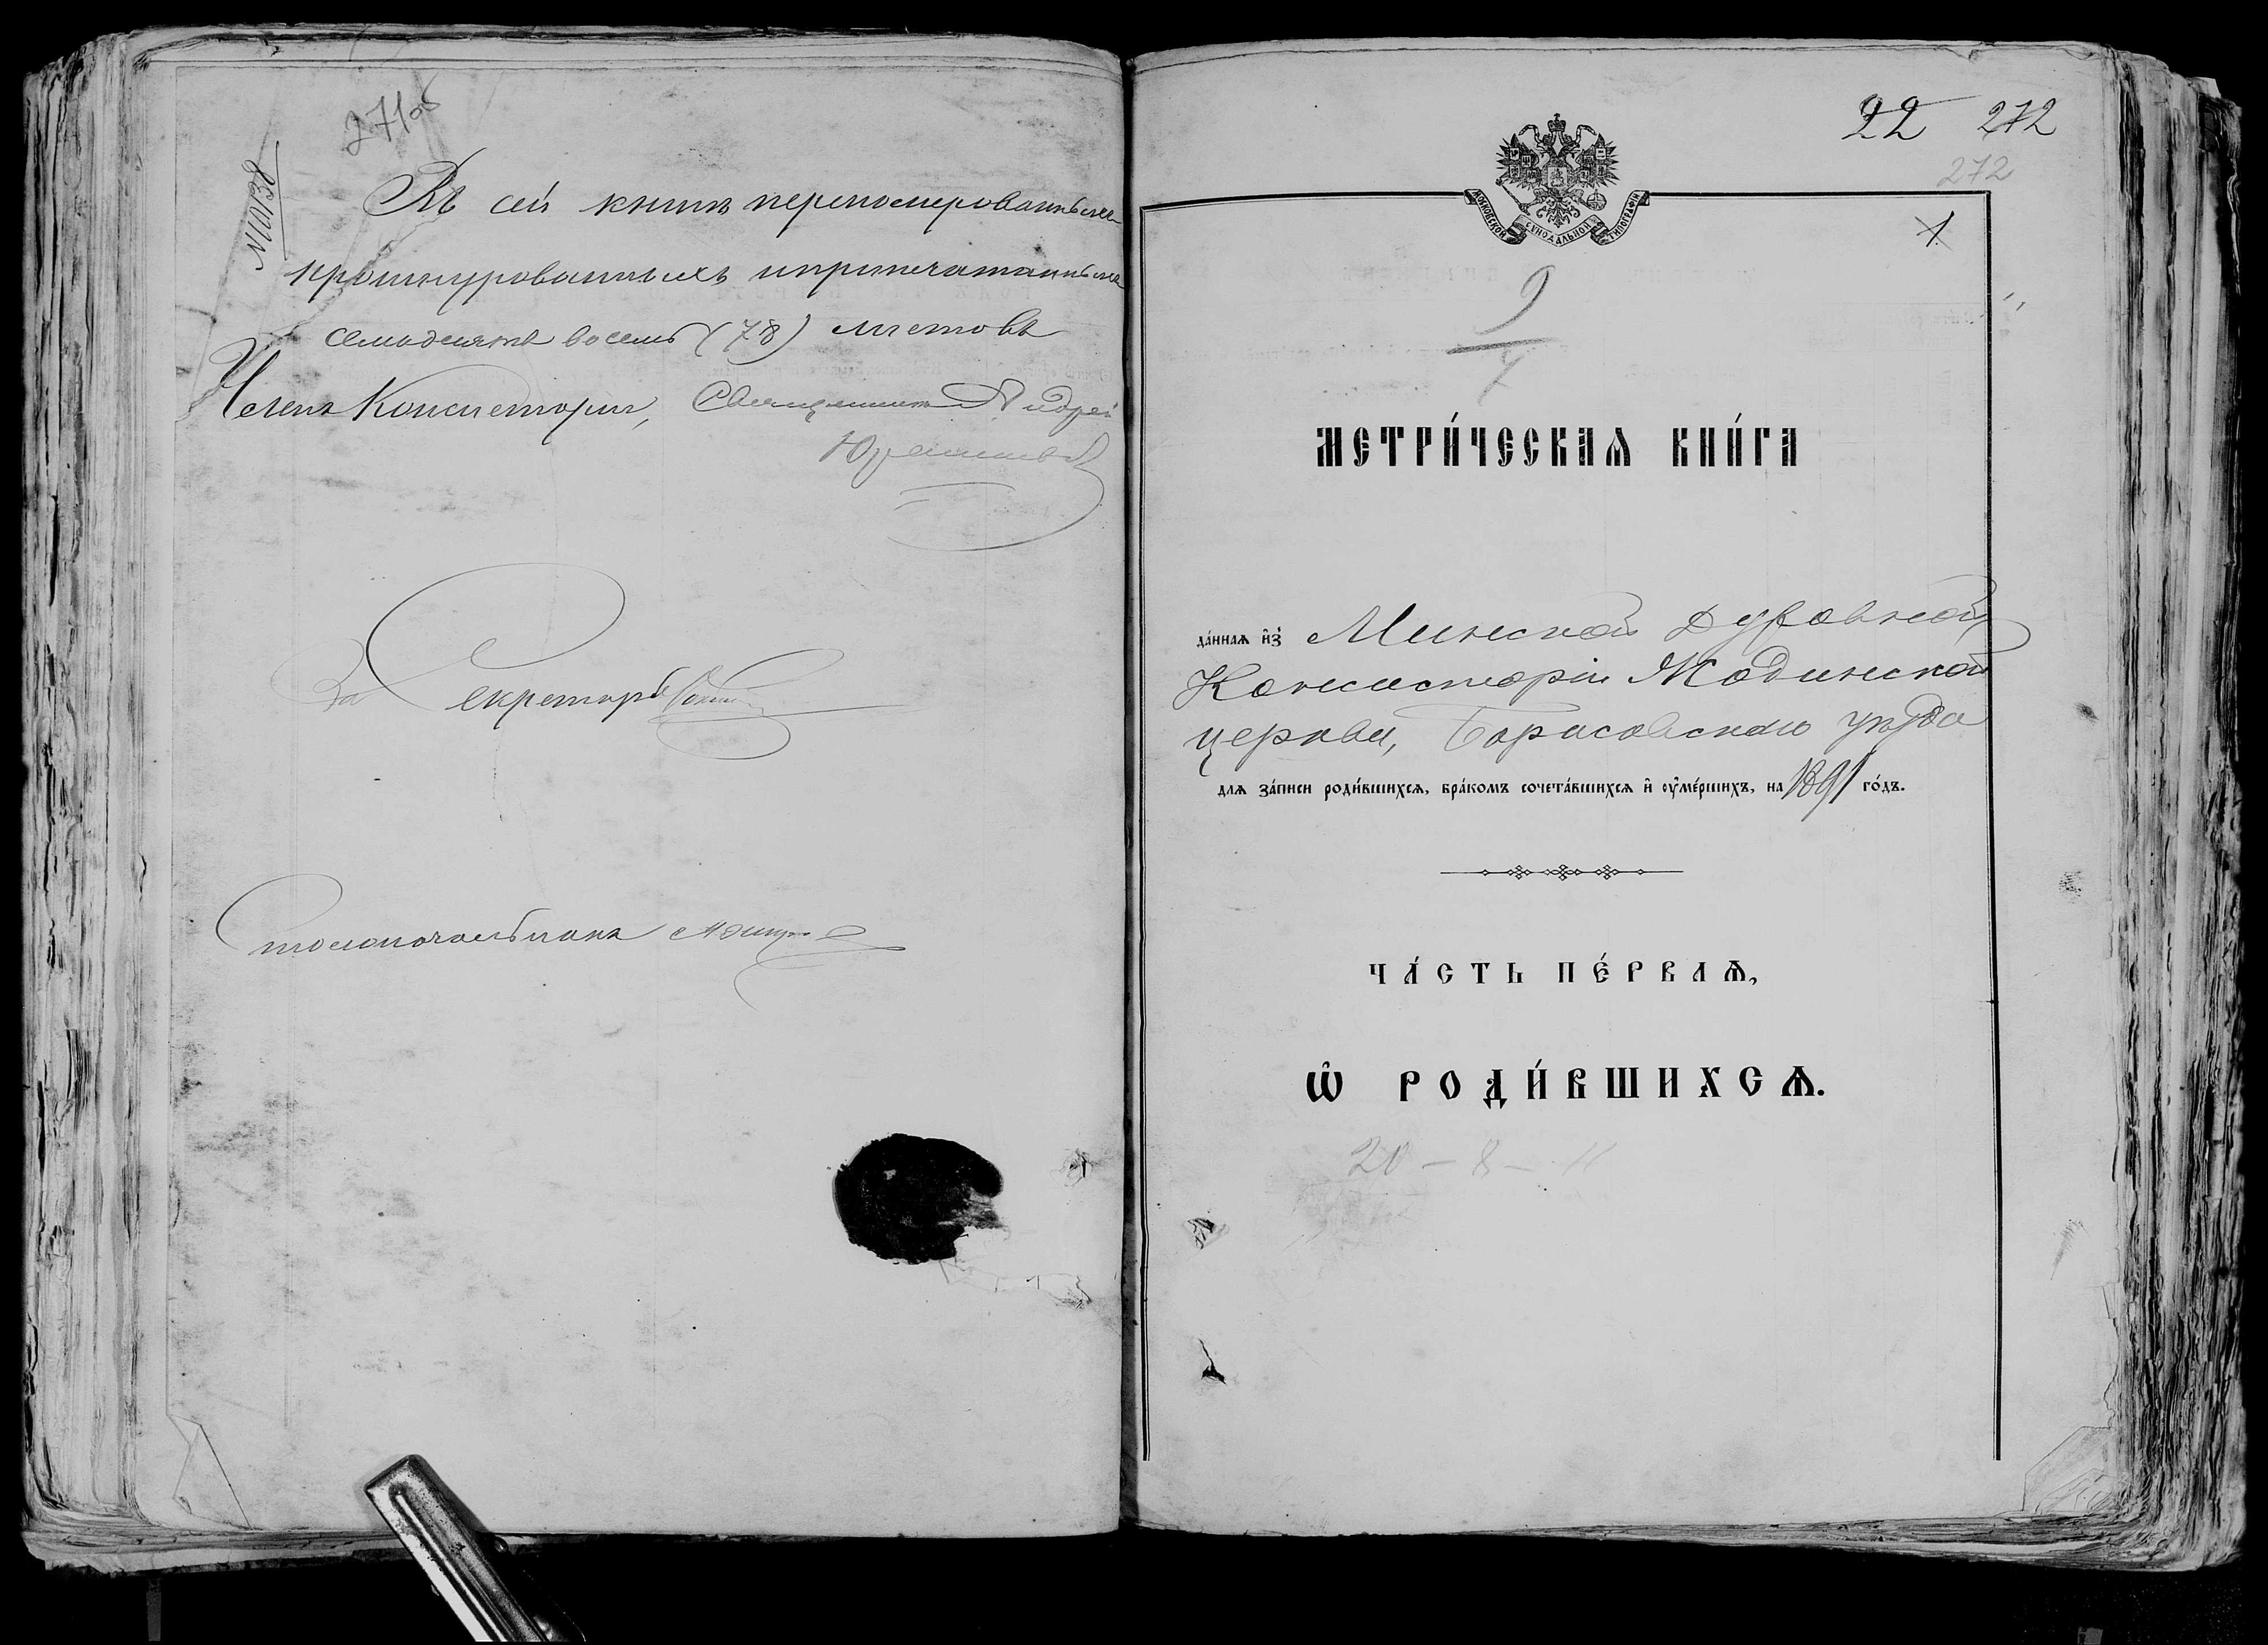 271об
№10138
Въ сей книгѣ переномерованныхъ
прошнурованныхъ и припечатанныхъ
семьдесятъ восемь (78) листовъ
Членъ Консисторіи, Священникъ Андрей
Юрашкевичъ
За Секретаря
Столоначальника
22 272
272
1
МОСКОВСКОЙ СѴНОДАЛЬНОЙ ТИПОГРАФІИ
9
7
МЕТРИ́ЧЕСКАѦ КНИ́ГА
да́ннаѧ и҆з̾ Минской Духовной
Консисторіи Жодинской
церкви, Борисовскаго уѣзда
длѧ за́писи роди́вшихсѧ, бра́комъ сочета́вшихсѧ и҆ оу҆ме́ршихъ, на 1891 го́дъ.
ЧА́СТЬ ПЕ́РВАѦ,
Ѡ҆ РОДИ́ВШИХСѦ.
20 – 8 – 11